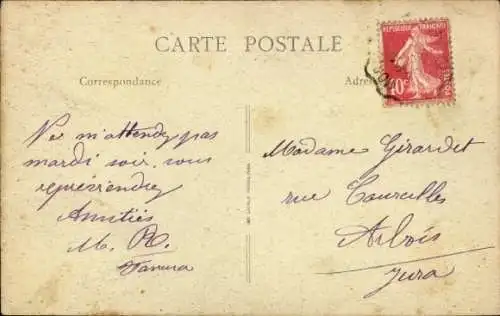 CARTE POSTALE
Correspondance
Adres
REPUBLIQUE FRANÇAISE
40c
POSTES
Ne m'attendez pas
mardi soir. vous
Amitiés
M. R.
Madame Girardet
rue Courcelles
Arbois
Jura